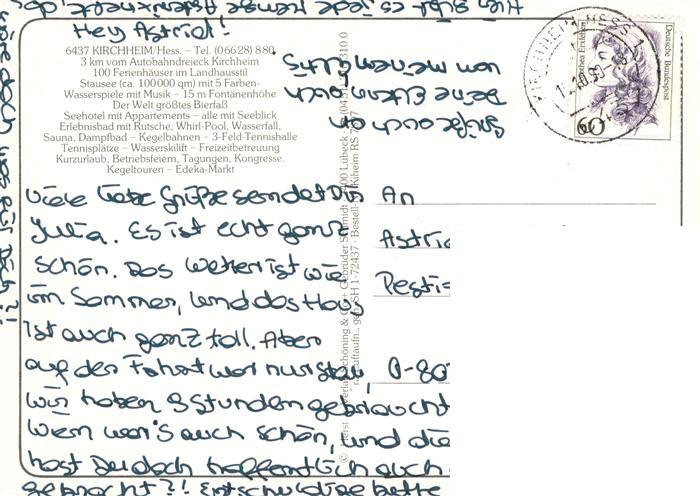 Hey Astrid!
6437 KIRCHHEIM/Hess. – Tel. (06628) 880
3 km vom Autobahndreieck Kirchheim
100 Ferienhäuser im Landhausstil
Stausee (ca. 100000 qm) mit 5 Farben-
Wasserspiele mit Musik – 15 m Fontänenhöhe
Der Welt größtes Bierfaß
Seehotel mit Appartements – alle mit Seeblick
Erlebnisbad mit Rutsche, Whirl-Pool, Wasserfall,
Sauna, Dampfbad – Kegelbahnen – 3-Feld-Tennishalle
Tennisplätze – Wasserskilift – Freizeitbetreuung
Kurzurlaub, Betriebsfeiern, Tagungen, Kongresse.
Kegeltouren – Edeka-Markt
Viele liebe Grüße sendet Dir
Julia. Es ist echt ganz
schön. Das Wetter ist wie
im Sommer, und das Haus
ist auch ganz toll. Aber
auf der Fahrt war nur Stau,
wir haben 8 Stunden gebraucht
Wern war's auch schön, und die
hast Du doch hoffentlich auch
gebracht?! Entschuldige bitte
Hier gibt es jede Menge
was für Dich?!
Grüße auch an
Deine Eltern auch
von meinen Eltis.
An
Astrid
Pestal
O-80
Deutsche Bundespost
60
KIRCHHEIM, HESS